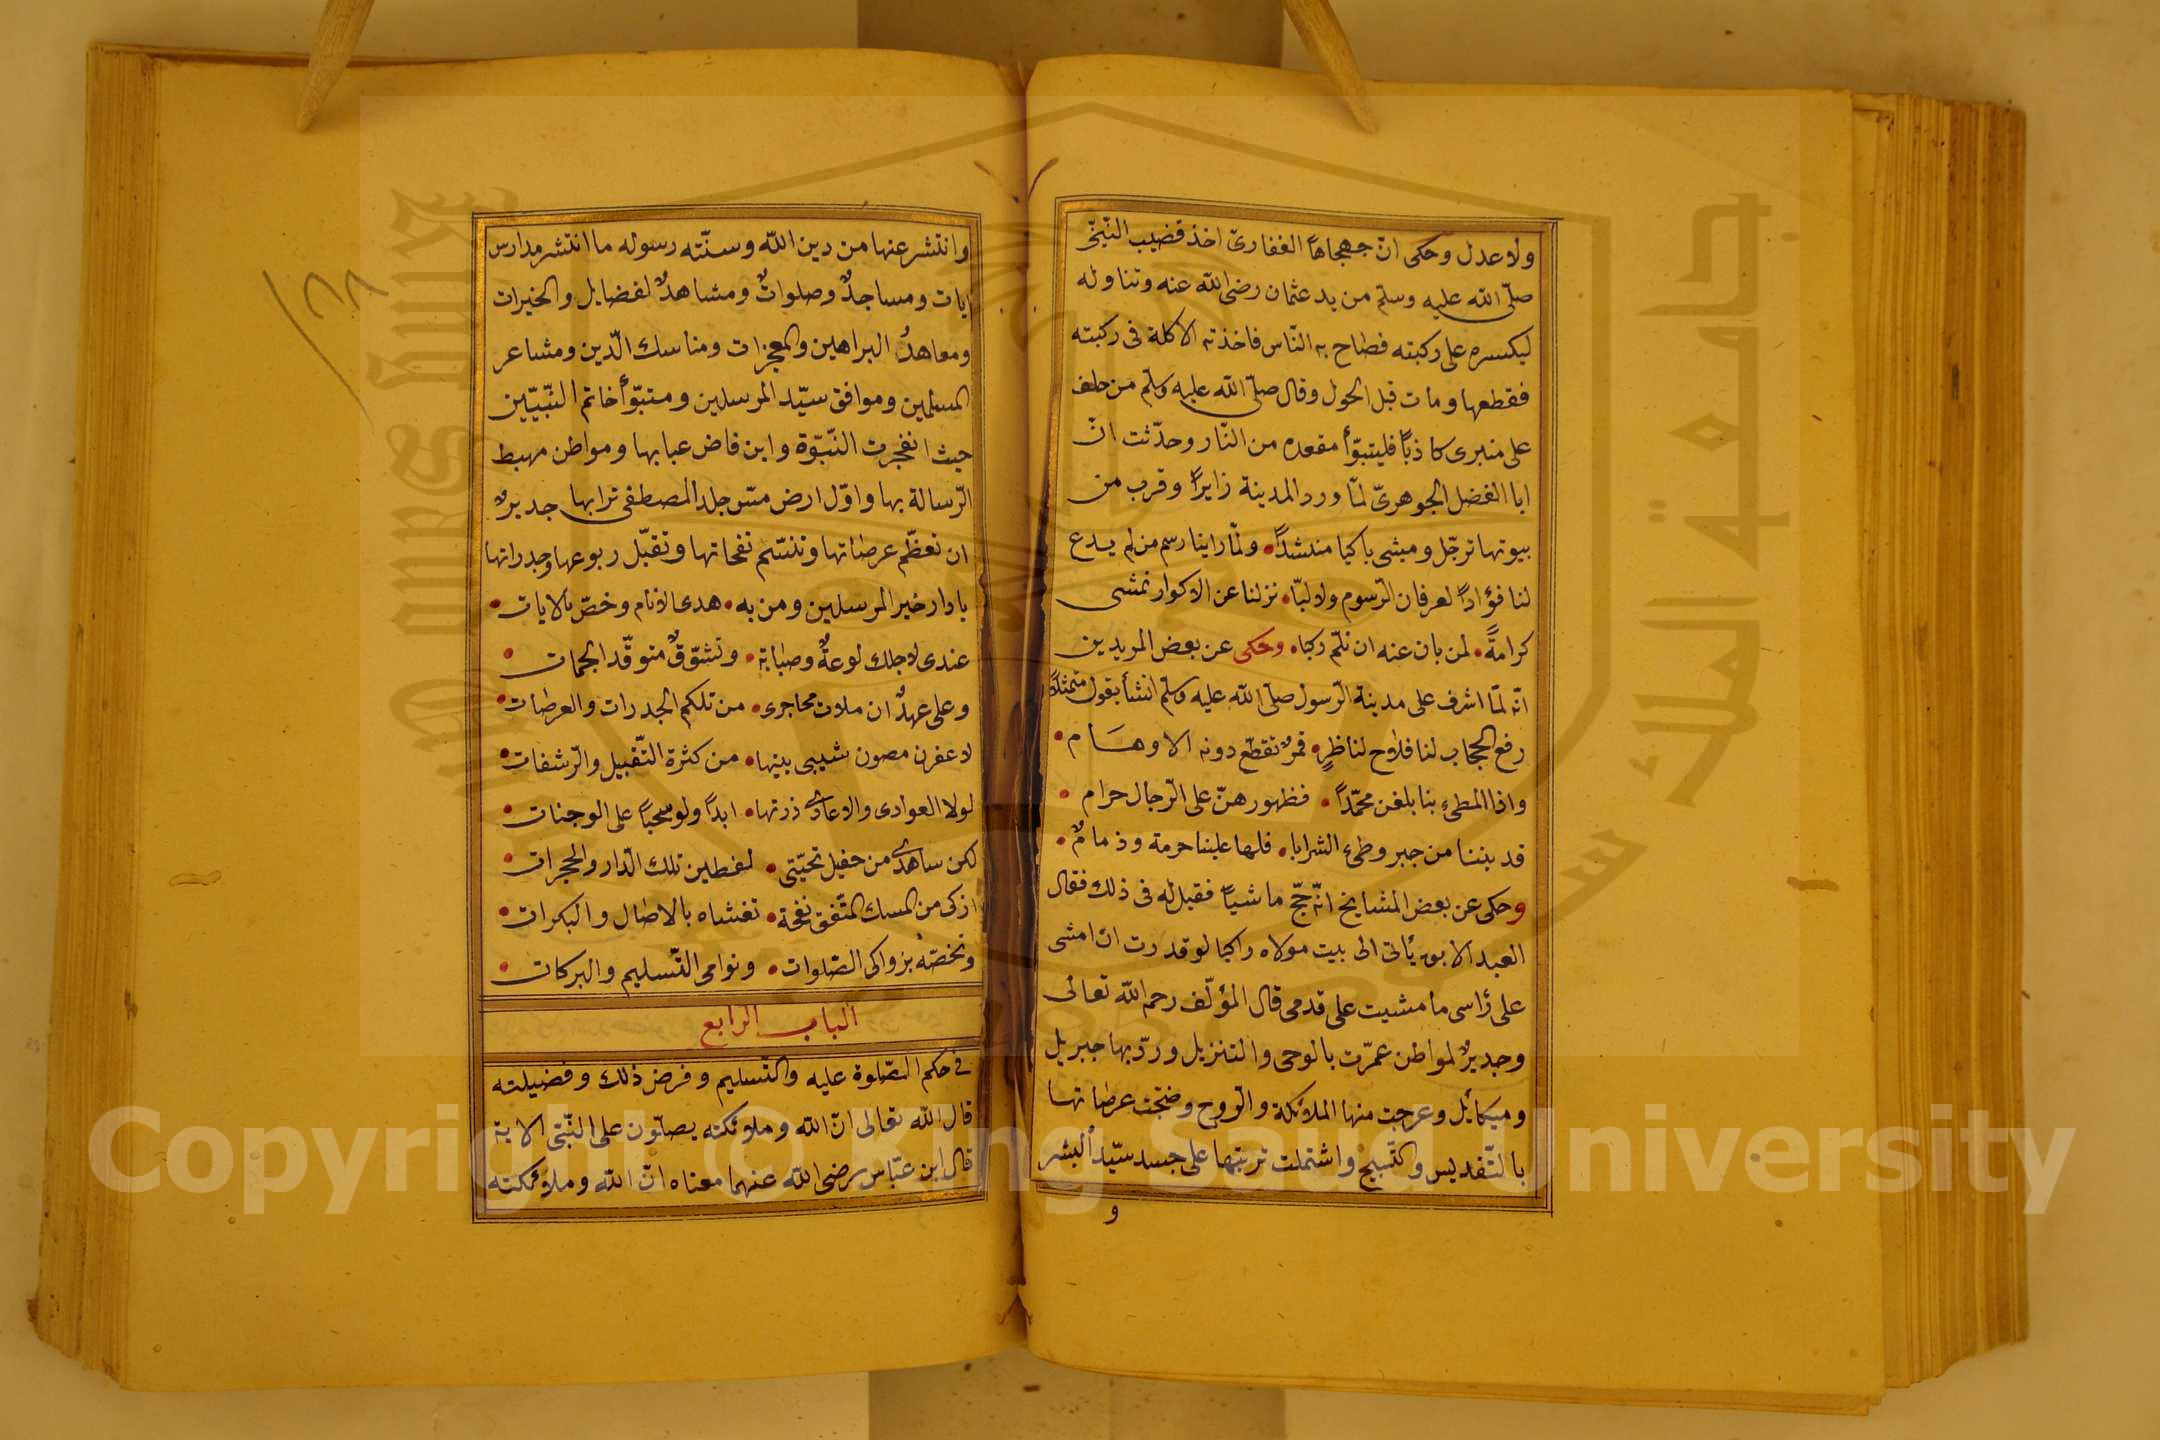 ولا عدل وحكى ان جهجاها الغفارى اخذ قضيب النبى
صلى الله عليه وسلم من يد عثمان رضى الله عنه وتناوله
ليكسره على ركبته فصاح به الناس فاخذته الاكلة فى ركبته
فقطعها ومات قبل الحول وقال صلى الله عليه وسلم من حلف
على منبرى كاذبا فليتبوأ مقعده من النار وحدثت ان
ابا الفضل الجوهرى لما ورد المدينة زايرا وقرب من
بيوتها ترجل ومشى باكيا منشدا • ولما راينا رسم من لم يدع
لنا فؤادا لعرفان الرسوم ولا لبا • نزلنا عن الاكوار نمشى
كرامة • لمن بان عنه ان نلم ركبا • وحكى عن بعض المريدين
انه لما اشرف على مدينة الرسول صلى الله عليه وسلم انشأ يقول متمثلا
رفع الحجاب لنا فلاح لناظر • قمر تقطع دونه الاوهام •
واذا المطى بنا بلغن محمدا • فظهورهن على الرجال حرام •
قد بيننا من خير وطئ الثرايا • فلها علينا حرمة وذمام •
وحكى عن بعض المشايخ انه حج ماشيا فقيل له فى ذلك فقال
العبد الابق يأتى الى بيت مولاه راكبا لو قدرت ان امشى
على رأسى ما مشيت على قدمى قال المؤلف رحمه الله تعالى
وجدير لمواطن عمرت بالوحى والتنزيل وردد بها جبريل
وميكائيل وعرجت منها الملائكة والروح وضجت عرصاتها
بالتقديس والتسبيح واشتملت تربتها على جسد سيد البشر
و
وانتشر عنها من دين الله وسنته رسوله ما انتشر مدارس
ايات ومساجد وصلوات ومشاهد لفضايل والخيرات
ومعاهد البراهين والمعجزات ومناسك الدين ومشاعر
المسلمين ومواقف سيد المرسلين ومتبوأ خاتم النبيين
حيث انفجرت النبوة واين فاض عبابها ومواطن مهبط
الرسالة بها واول ارض مس جلد المصطفى ترابها جدير
ان تعظم عرصاتها وتنسم نفحاتها وتقبل ربوعها وجدراتها
يا دار خير المرسلين ومن به • هدى الانام وخص بالايات •
عندى لاجلك لوعة وصبابة • وتشوق متوقد الجمات •
وعلى عهد ان ملات محاجرى • من تلكم الجدرات والعرصات •
لاعفرن مصون شيبى بينها • من كثرة التقبيل والرشفات •
لولا العوادى والاعادى زرتها • ابدا ولو سحبا على الوجنات •
لكن ساهدى من حفيل تحيتى • لقطين تلك الدار والحجرات •
ازكى من المسك المتفق نفحة • تغشاه بالاصال والبكرات •
وتخصه بزواكى الصلوات • ونوامى التسليم والبركات •
الباب الرابع
فى حكم الصلوة عليه والتسليم وفرض ذلك وفضيلته
قال الله تعالى ان الله وملائكته يصلون على النبى الاية
قال ابن عباس رضى الله عنهما معناه ان الله وملائكته
Copyright © King Saud University
جامعة الملك سعود
King Saud University